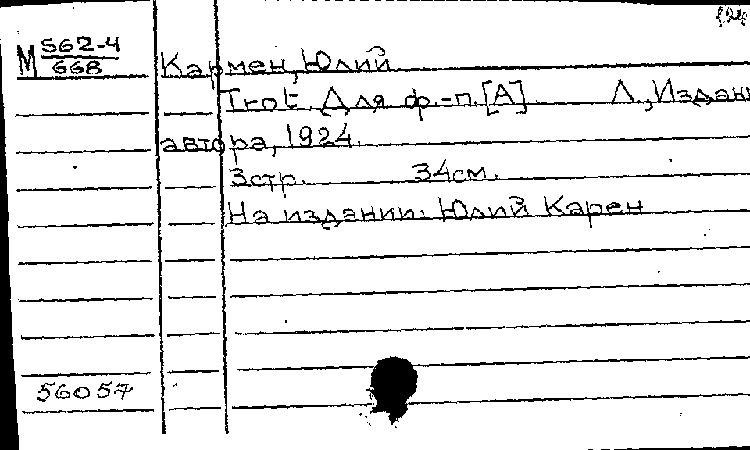 М 562-4
668
Кармен, Юлий
Trot. Для ф.-п. [А]. Л., Издан
автора, 1924.
3стр. 34см.
На издании: Юлий Карен
56057